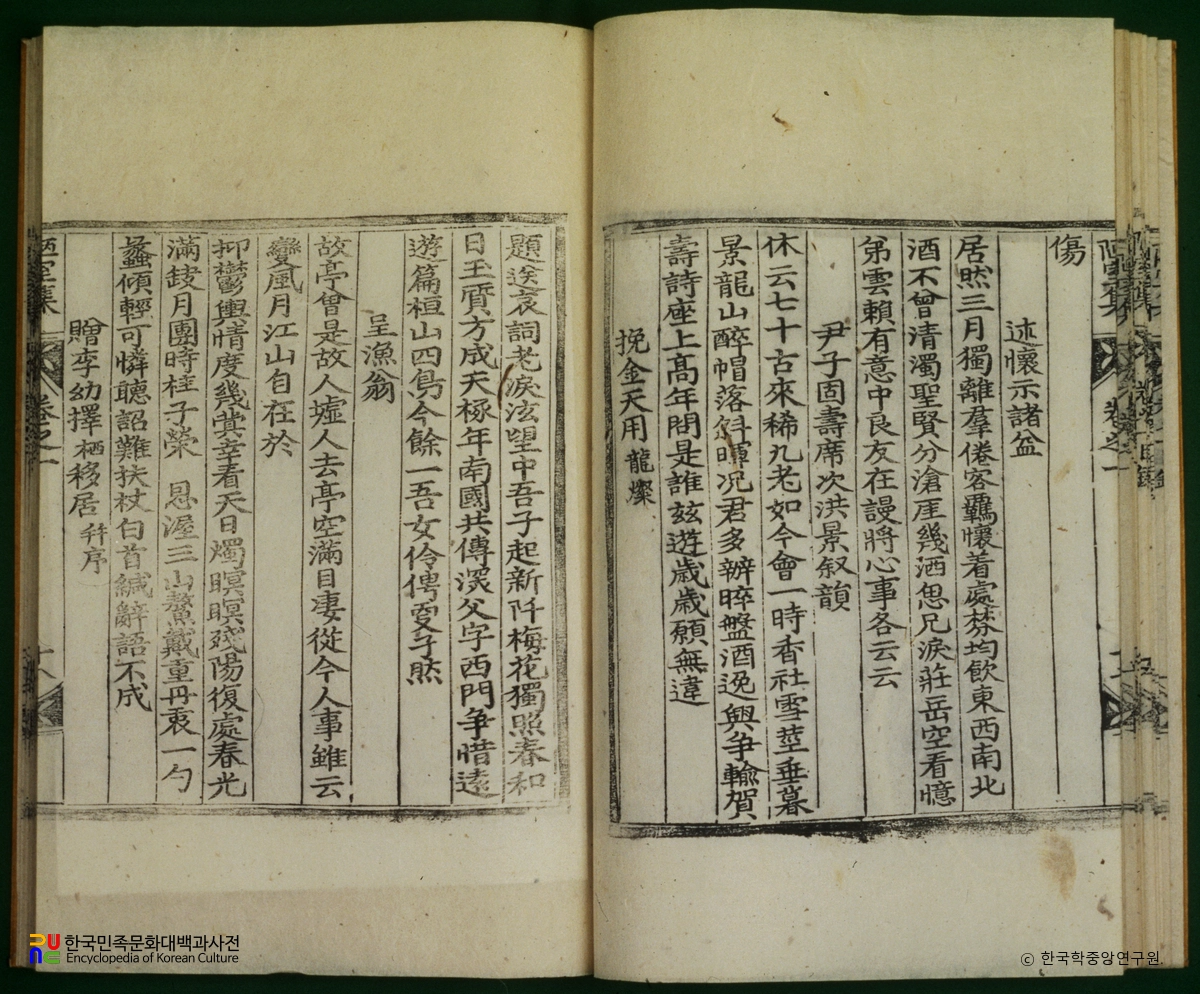 傷
述懷示諸益
居然三月獨離羣倦客羈懷着處棼均飮東西南北
酒不曾清濁聖賢分滄厓幾洒思兄淚莊岳空看憶
弟雲賴有意中良友在謾將心事各云云
尹子固壽席次洪景叙韻
休云七十古來稀九老如今會一時香社雪莖垂暮
景龍山醉帽落斜暉况君多辦晬盤酒逸興爭輸賀
壽詩座上高年問是誰玆遊歲歲願無違
挽金天用龍燦
題送哀詞老淚泫望中吾子起新阡梅花獨照春和
日玉質方成天椓年南國共傳深父字西門爭惜遠
遊篇桓山四鳥今餘一吾女伶俜更孑然
呈漁翁
故亭曾是故人墟人去亭空滿目凄從今人事雖云
變風月江山自在於
抑鬱輿情度幾冥幸看天日燭暝暝殘陽復處春光
滿缺月團時桂子榮 恩渥三山鰲戴重丹衷一勺
蠡傾輕可憐聽詔難扶杖白首緘辭語不成
贈李幼擇栖移居幷序
卷之一
한국민족문화대백과사전
Encyclopedia of Korean Culture
ⓒ 한국학중앙연구원